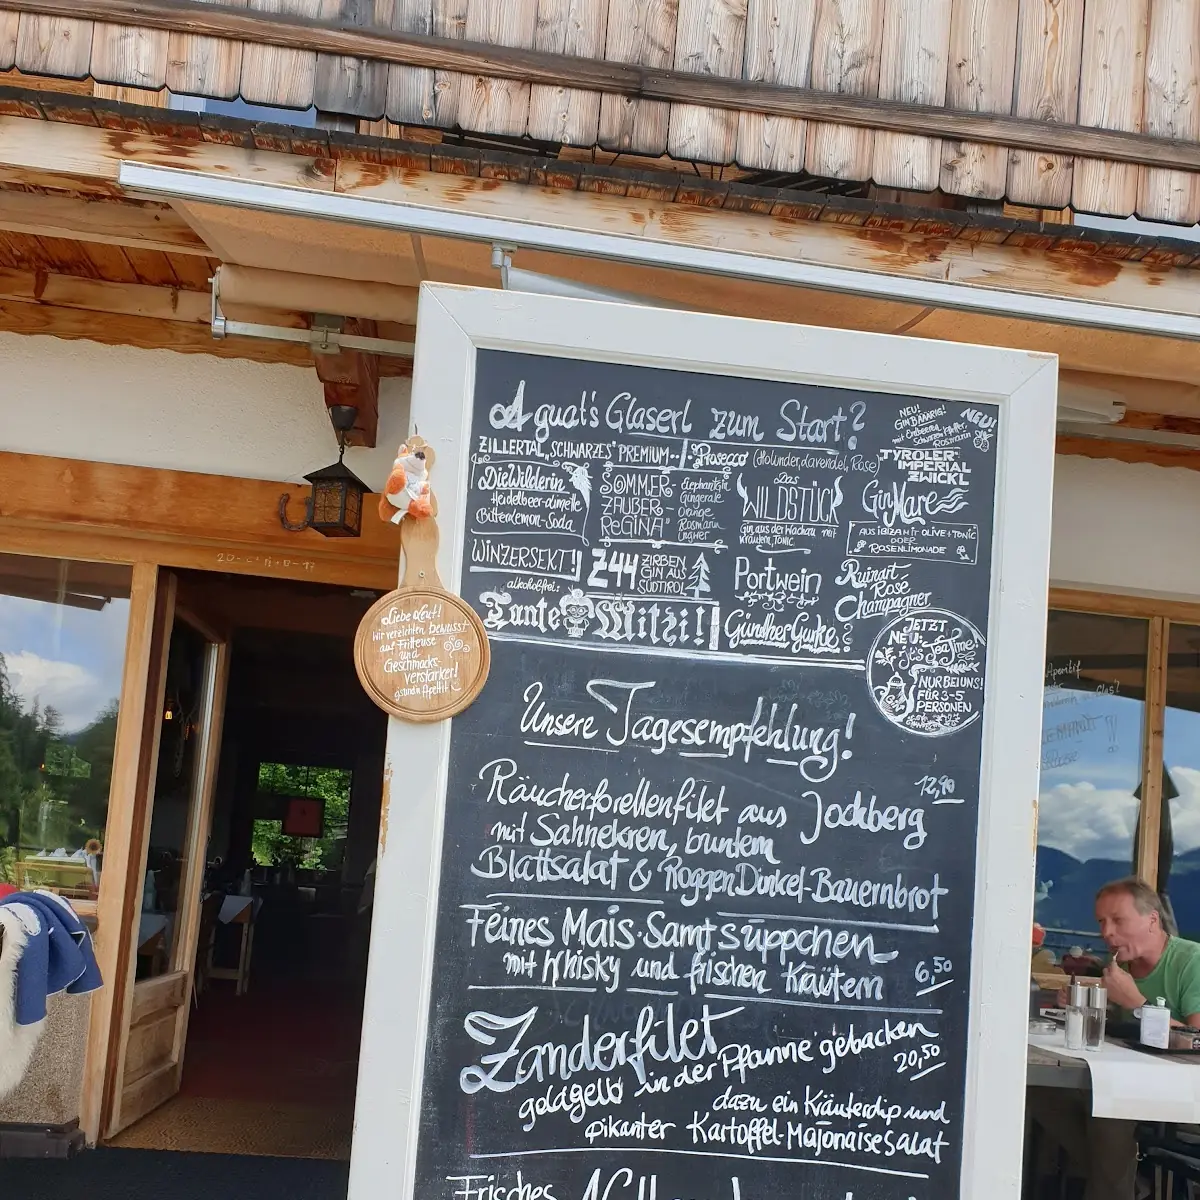 A guat's Glaserl zum Start?
NEU!
GIN BÄÄRIG!
mit Erdbeeren
Schwarzem Pfeffer,
Rosmarin
NEU!
ZILLERTAL "SCHWARZES" PREMIUM...
Prosecco (Holunder, Lavendel, Rose)
TYROLER-
IMPERIAL
ZWICKL
Die Wilderin
Heidelbeer-Limette
Bitterlemon-Soda
SOMMER-
ZAUBER-
"REGINA"
Elephant Gin
Gingerale
Orange
Rosmarin
Ingwer
Das
WILDSTÜCK
Gin aus der Wachau mit
Kräutern, TONIC
Gin Mare
AUS IBIZA MIT OLIVE + TONIC
ODER
ROSENLIMONADE
WINZERSEKT!
Z44
ZIRBEN
GIN AUS
SÜDTIROL
Portwein
Ruinart
Rosé
Champagner
alkoholfrei:
Tante Mitzi!
Günther Gurke?
JETZT
NEU:
It's Tea Time!
NUR BEI UNS!
FÜR 3-5
PERSONEN
20-C+M+B-17
Liebe Leut!
Wir verzichten bewusst
auf Fritteuse
und
Geschmacks-
verstärker!
gsundn Appetit
Unsere Tagesempfehlung!
12,90
Räucherforellenfilet aus Jochberg
mit Sahnekren, buntem
Blattsalat & Roggen Dinkel-Bauernbrot
Feines Mais-Samtsüppchen
mit Whisky und frischen Kräutern
6,50
Zanderfilet
goldgelb in der Pfanne gebacken
20,50
dazu ein Kräuterdip und
pikanter Kartoffel-Majonaisesalat
Frisches
Aperitif